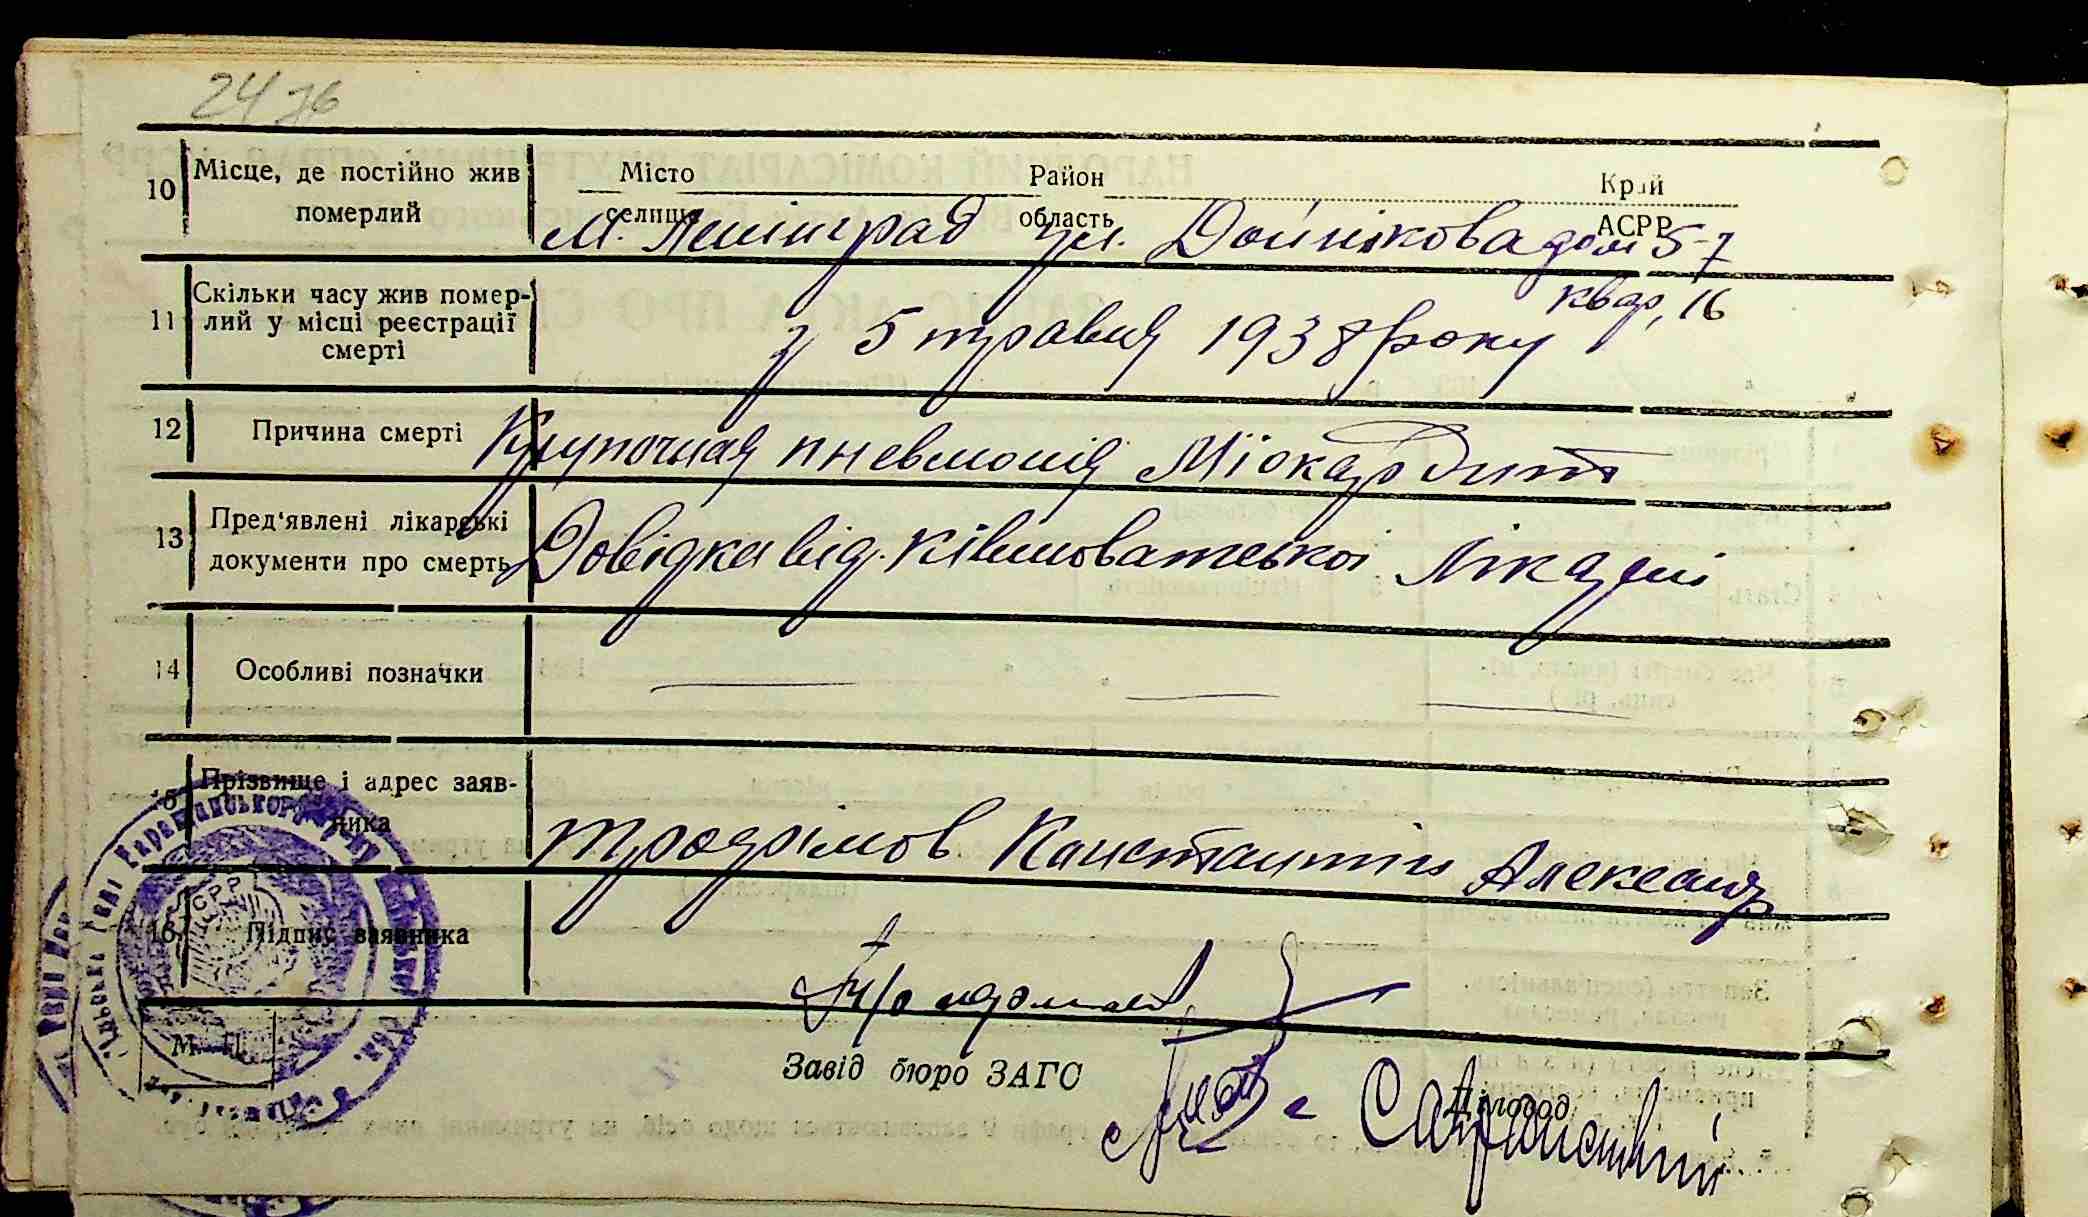 24
10 Місце, де постійно жив померлий
Місто Район Край
селище область АСРР
м. Ленінград ул. Дойнікова дом 5-7
квар, 16
11 Скільки часу жив помер-
лий у місці реєстрації
смерті
з 5 травня 1938 року
12 Причина смерті
Крупочная пневмонія Міокардит
13 Пред'явлені лікарські
документи про смерть
Довідка від. Ківшоватської Лікарні
14 Особливі позначки
— — —
15 Прізвище і адрес заяв-
ника
Константін Александ.
16 Підпис заявника
М. П.
Завід бюро ЗАГС
Діловод